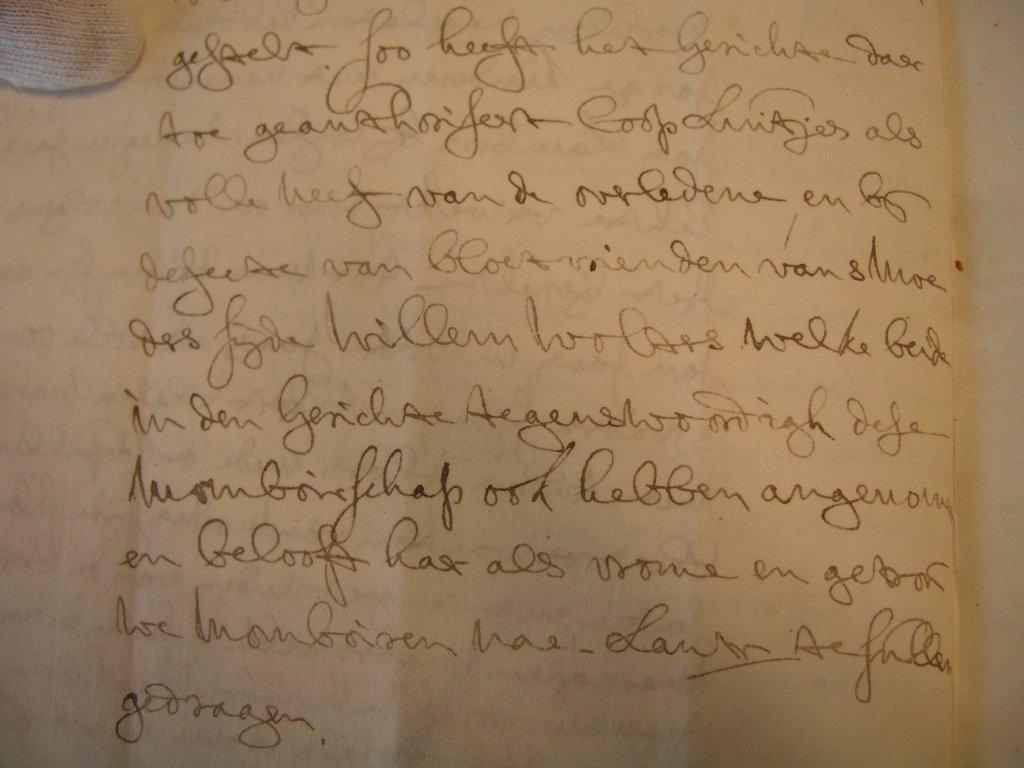 gestelt. soo heeft het Gerichte daer
toe geauthoriseert Coop Luitjes als
volle neef van de overledene en by
defecte van bloetvrienden van s Moe
des sijde Willem Wolters welke beide
in den Gerichte tegenswoordigh dese
Momboirschap ook hebben angenomen
en belooft haer als vrome en getrou
we Momboiren nae Lantr te sullen
gedraagen.